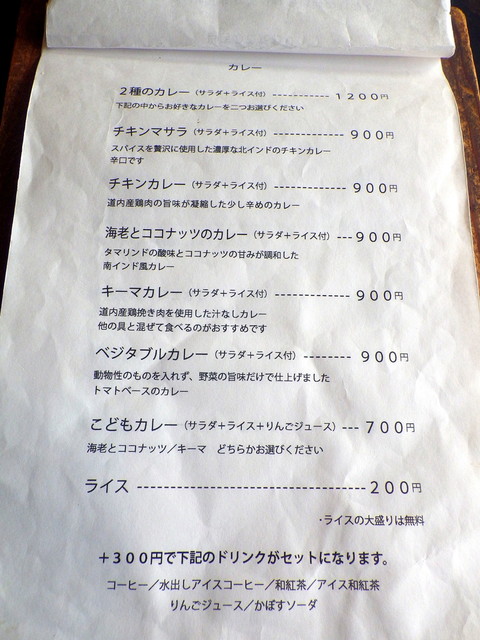 カレー
２種のカレー（サラダ＋ライス付）----------- １２００円
下記の中からお好きなカレーを二つお選びください
チキンマサラ（サラダ＋ライス付）------------ ９００円
スパイスを贅沢に使用した濃厚な北インドのチキンカレー
辛口です
チキンカレー（サラダ＋ライス付）------------ ９００円
道内産鶏肉の旨味が凝縮した少し辛めのカレー
海老とココナッツのカレー（サラダ＋ライス付）---９００円
タマリンドの酸味とココナッツの甘みが調和した
南インド風カレー
キーマカレー（サラダ＋ライス付）------------ ９００円
道内産鶏挽き肉を使用した汁なしカレー
他の具と混ぜて食べるのがおすすめです
ベジタブルカレー（サラダ＋ライス付）-------- ９００円
動物性のものを入れず、野菜の旨味だけで仕上げました
トマトベースのカレー
こどもカレー（サラダ＋ライス＋りんごジュース）--- ７００円
海老とココナッツ／キーマ　どちらかお選びください
ライス ------------------------------２００円
・ライスの大盛りは無料
＋３００円で下記のドリンクがセットになります。
コーヒー／水出しアイスコーヒー／和紅茶／アイス和紅茶
りんごジュース／かぼすソーダ